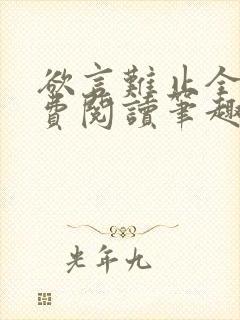 欲言難止全
費閱讀筆趣
光年九